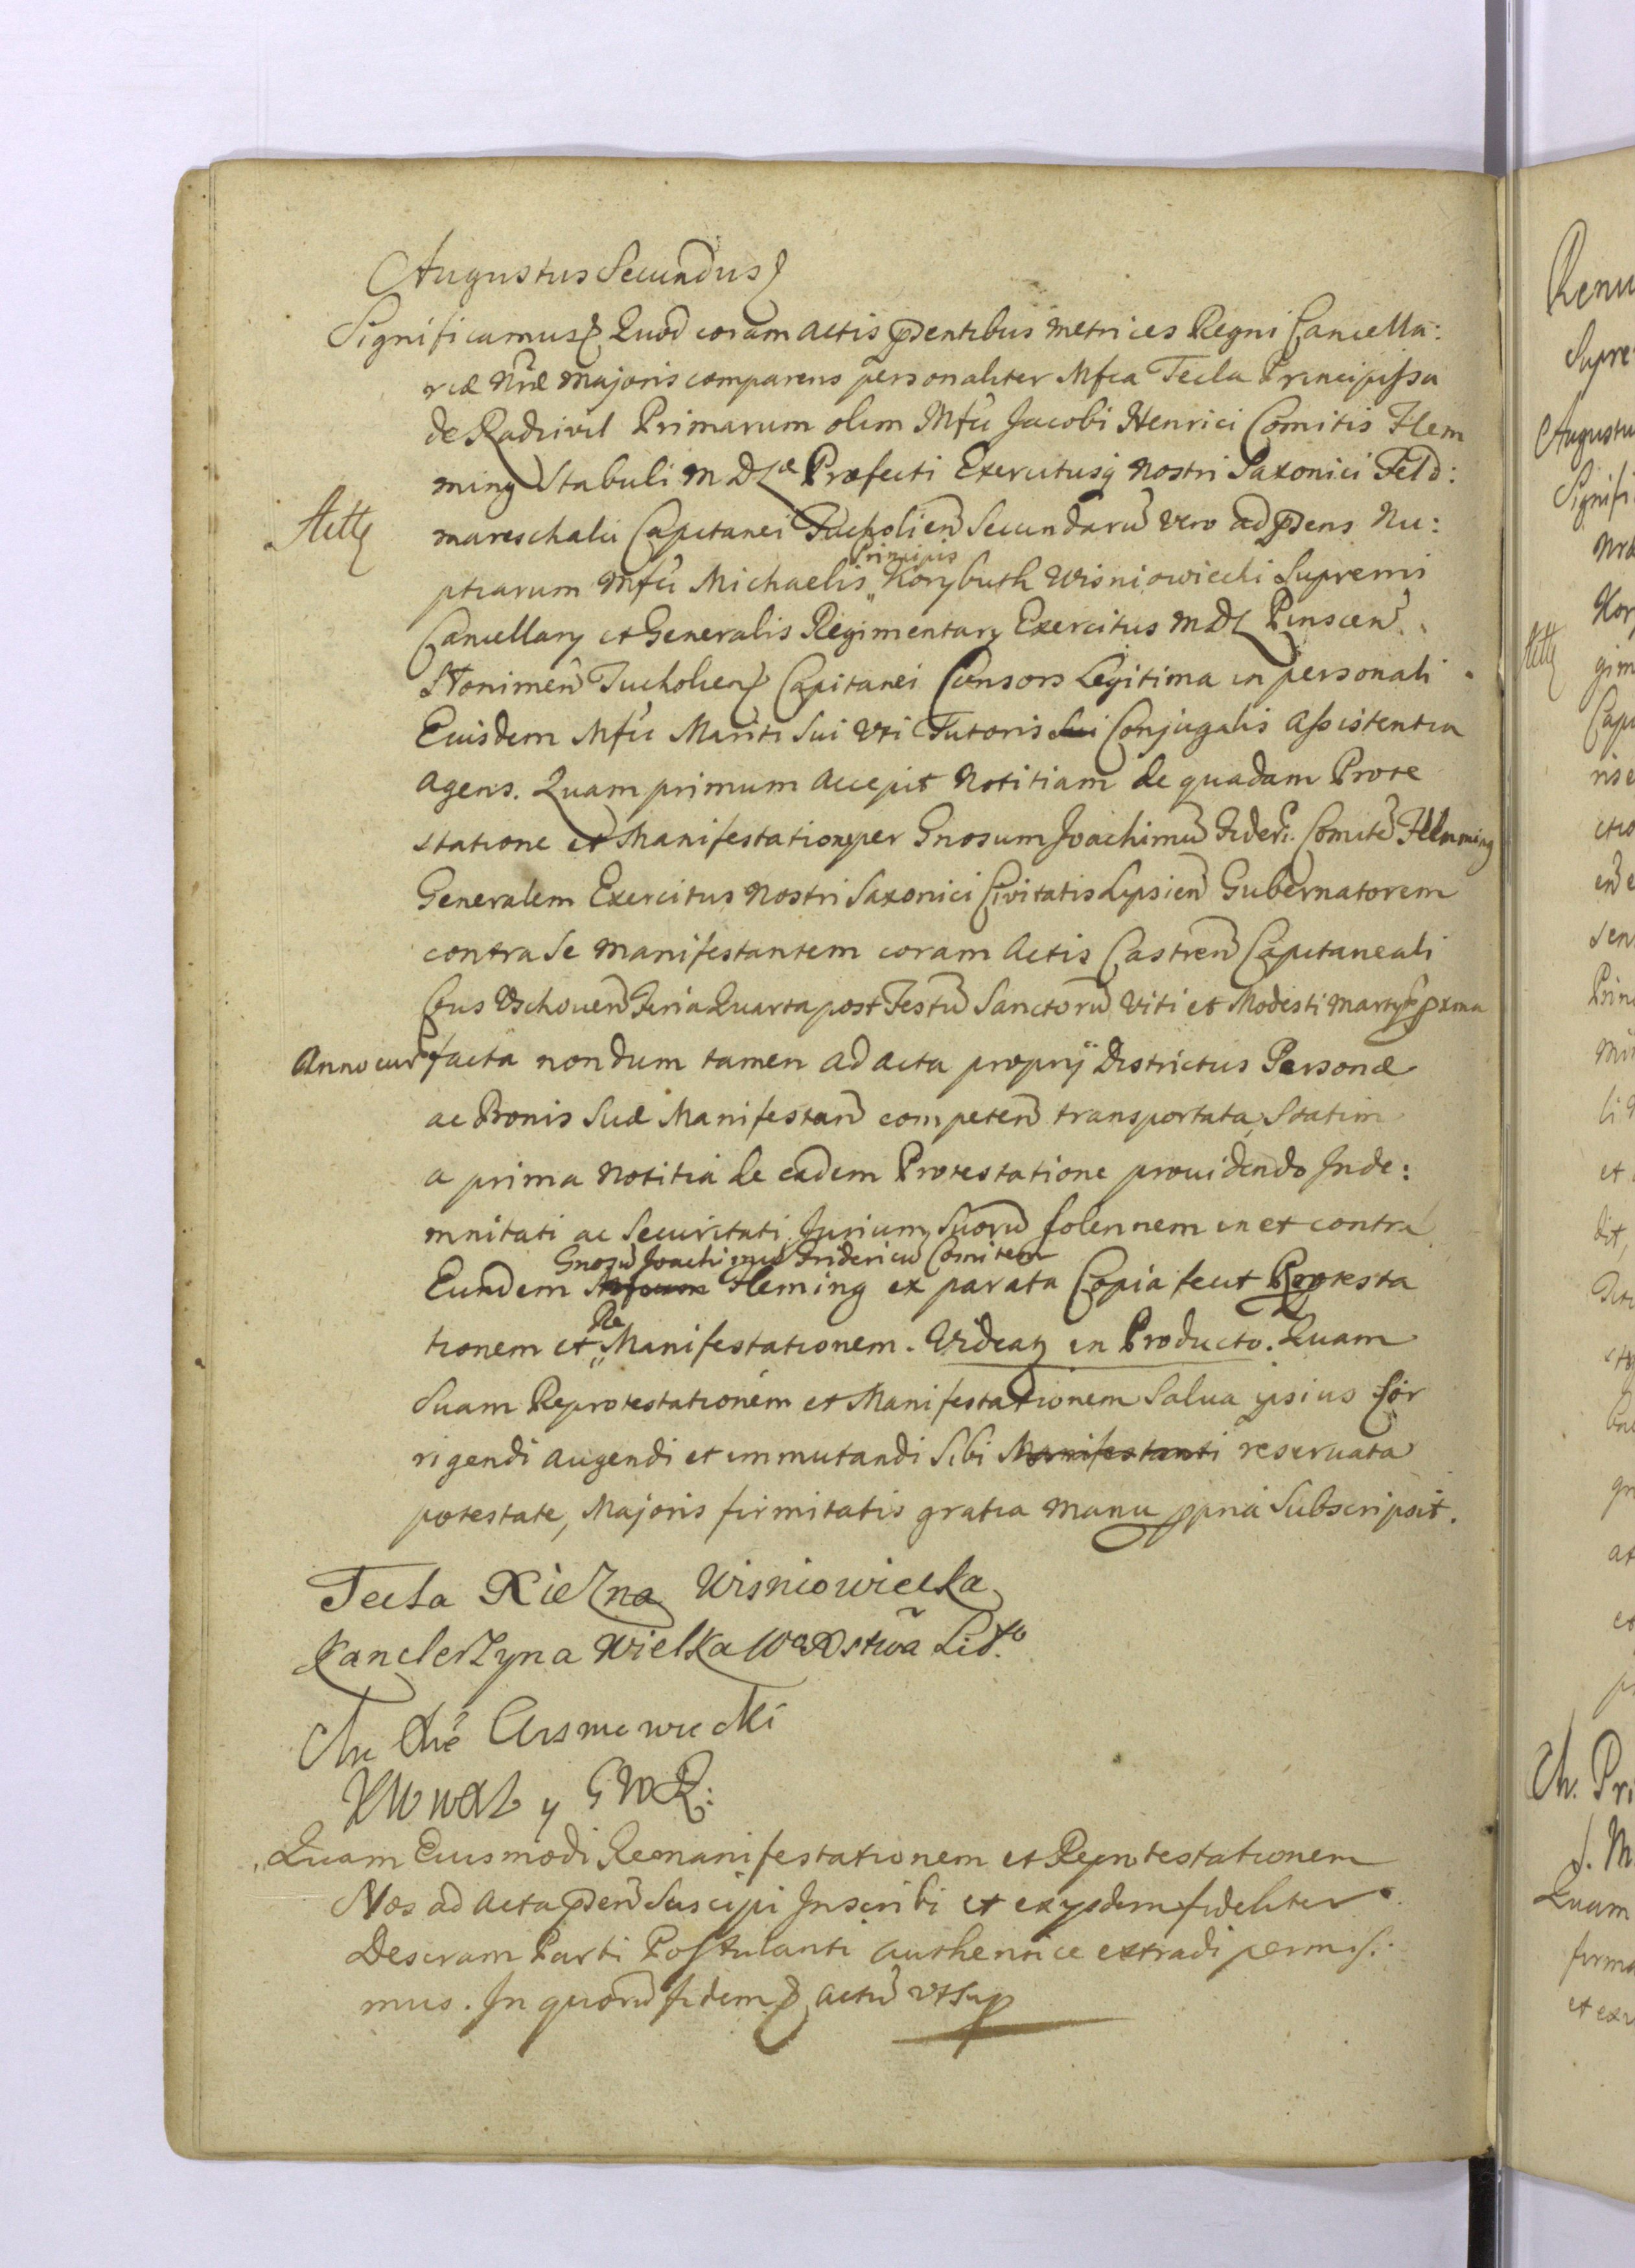 Augustus Secundus
Significamus Quod coram Actis pñentibus Metrices Regni Cancella:
riæ Nr̃æ Majoris comparens personaliter Mfca Tecla Principissa
de Radzivil Primarum olim Mfci Jacobi Henrici Comitis Flem
ming Stabuli M D L Præfecti Exercitusq Nostri Saxonici Feld:
mareschalci Capitanei Tucholien̄ Secundarū vero ad pñens Nu:
Principis
ptiarum Mfci Michaelis Korybuth Wisniowiecki Supremi
Cancellarÿ et Generalis Regimentarÿ Exercitus M D L Pinscen̄
Stonimen̄ Tucholien Capitanei Consors Legitima in personali
Eiusdem Mfci Mariti Sui uti Tutoris Sui Conjugalis Assistentia
Agens. Quam primum Accepit Notitiam de quadam Prote
statione et Manifestatione per Gnosum Joachimū Frider: Comitē Flemming
Generalem Exercitus Nostri Saxonici Civitatis Lipsien̄ Gubernatorem
contra se Manifestantem coram Actis Castren̄ Capitaneali
bus Vschouen̄ Feria Quarta post Festū Sanctorū Viti et Modesti Martyr pxma
Anno cur facta nondum tamen ad acta proprÿ Districtus Personæ
ac Bonis Suæ Manifestan̄ competen̄ transportata, Statim
a prima Notitia de eadem Protestatione providendo Inde:
mnitati ac Securitati Jurium Suorū solennem in et contra
Gnosū Joachimū Fridericū Comitem
Eundem Fleming ex parata Copia fecit Reprotesta
Re
tionem et Manifestationem. Videaţ in Producto. Quam
Suam Reprotestationem et Manifestationem Salva ipsius Cor
rigendi augendi et immutandi Sibi Manifestanti reservata
potestate, Majoris firmitatis gratia manu ppria Subscripsit.
Tecla Xiezna Wisniowiecka
Kanclerzyna Wielka WoXstwa Lit.
Wisniowiecki
Quam Eiusmodi Remanifestationem et Reprotestationem
Nos ad Acta pñen̄ Suscipi Inscribi et ex ÿsdem fideliter
Descriptam Parti Postulanti authentice extradi permisi:
mus. In quorū fidem Actū ut Sup